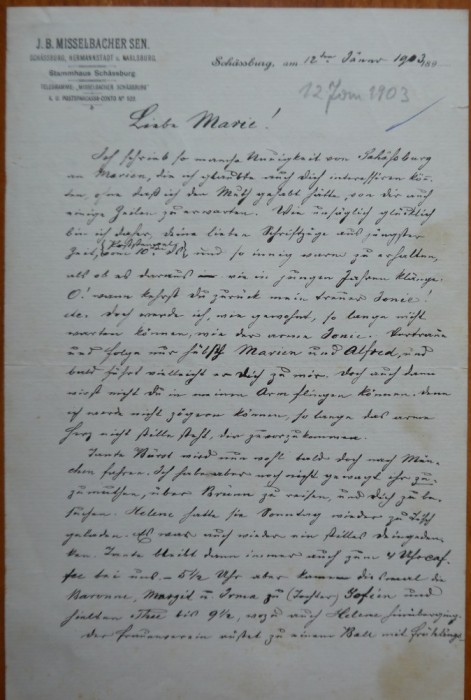 J. B. MISSELBACHER SEN.
SCHÄSSBURG, HERMANNSTADT u. KARLSBURG.
Stammhaus Schässburg
TELEGRAMME: „MISSELBACHER SCHÄSSBURG“
K. U. POSTSPARCASSEN-CONTO Nº
Schässburg, am 12ten Jänner 1903
12 Jan 1903
Liebe Marie!
Ich schrieb so manche Neuigkeit von Schäßburg
an Marien, die ich glaubte auch Dich interessiren kön-
ten, ohne daß ich den Muth gehabt hätte, von dir auch
einige Zeilen zu erwarten. Wie unsäglich glücklich
bin ich daher, deine lieben Schriftzüge aus jüngster
Zeit, vom 10ten und so innig warm zu erhalten,
als ob es daraus wie in jungen Jahren klänge:
O! wann kehrst Du zurück mein treuer Tonic!
etc. Doch werde ich, wie gewohnt, so lange nicht
warten können, wie der arme Tonic. Vertraue
und folge nur hübsch Marien und Alfred, und
bald führt vielleicht er Dich zu mir. Doch auch dann
wirst nicht Du in meinen Arm fliegen können, denn
ich werde nicht zögern können, so lange das arme
Herz nicht stille steht, dir zuvorzukommen.
Tante wird nun wohl bald doch nach Mün-
chen fahren. Ich habe aber noch nicht gewagt ihr zu-
zumuthen, über Brünn zu reisen, und Dich zu be-
suchen. Helene hatte sie Sonntag wieder zu Tisch
geladen. Es war auch wieder ein stilles Deingeden-
ken. Tante bleibt dann immer auch zum 4 Uhrcaf-
fee bei uns. – 5½ Uhr aber kamen diesmal die
Baronne, Margit u Irma zu (Tochter) Sofien und
hielten Thee bis 9½, wozu auch Helene
Der Frauenverein rüstet zu einem Ball mit Frühlings-